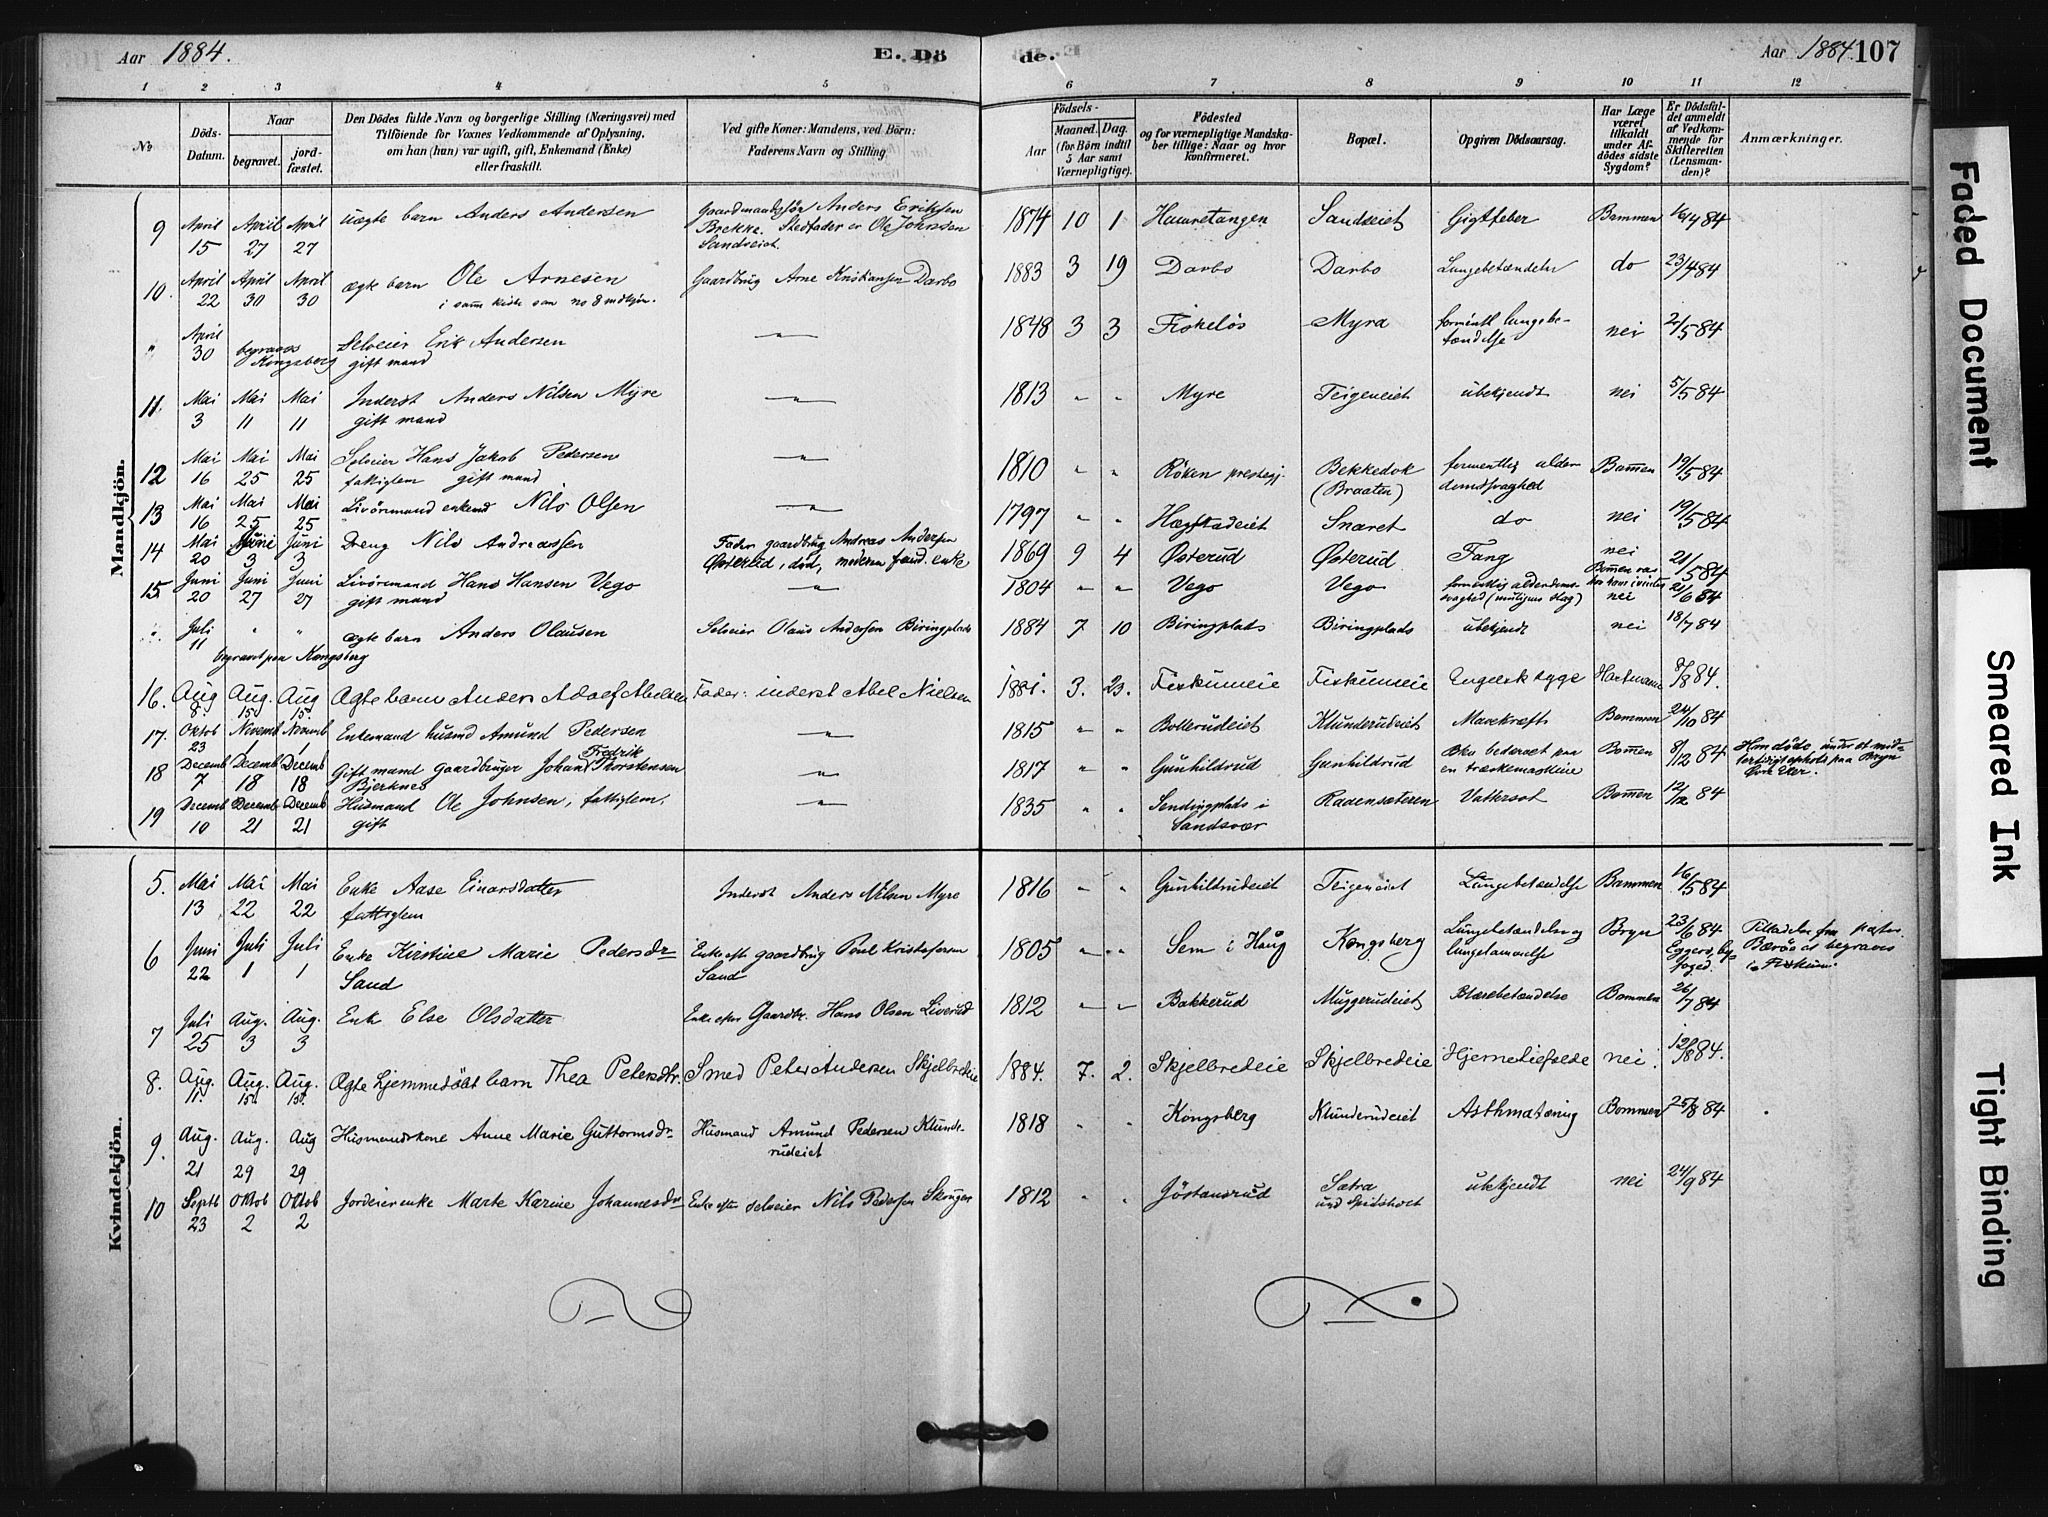 Aar 1884.
E. Dö
de.
Aar 1884. 107
1 2 3 4 5 6 7 8 9 10 11 12
No
Döds-Datum.
Naar
begravet.
jord-fæstet.
Den Dödes fulde Navn og borgerlige Stilling (Næringsvei) med
Tilföiende for Voxnes Vedkommende af Oplysning,
om han (hun) var ugift, gift, Enkemand (Enke)
eller fraskilt.
Ved gifte Koner: Mandens, ved Börn:
Faderens Navn og Stilling.
Födsels-
Aar
Maaned. Dag.
(for Börn indtil
5 Aar samt
Værnepligtige).
Födested
og for værnepligtige Mandska-
ber tillige: Naar og hvor
konfirmeret.
Bopæl.
Opgiven Dödsaarsag.
Har Læge
været
tilkaldt
under Af-
dödes sidste
Sygdom?
Er Dödsfal-
det anmeldt
af Vedkom-
mende for
Skifteretten
(Lensman-
den)?
Anmærkninger.
Mandkjön.
9 April 15 April 27 April 27 uægte barn Anders Andersen Gaardmandssön Anders Eriksen
Brekke. Stedfader er Ole Johnsen
Sandseiet.
1874 10 1 Hauretangen Sandseiet Gigtfeber Bommen 16/4 84
10. April 22 April 30 April 30 ægte barn Ole Arnesen Gaardbrug Arne Kristiansen Darbo 1883 3 19 Darbo Darbo Lungebetændelse do 23/4 84
i samme kiste som no 8 mdkjön.
" April 30 begraves Kongsberg Selveier Erik Andersen
gift mand
" 1848 3 3 Fiskelös Myra formentl lungebe-
tændelse nei 2/5 84
11. Mai 3 Mai 11 Mai 11 Inderst Anders Nilsen Myre
gift mand
" 1813 " " Myre Teigeneiet ubekjendt nei 5/5 84
12 Mai 16 Mai 25 Mai 25 Selveier Hans Jakob Pedersen
fattiglem gift mand
" 1810 " " Röken prestegj. Bekkedok
(Braaten) formentlig alder
domssvaghed Bommen 19/5 84
13 Mai 16 Mai 25 Mai 25 Livörsmand enkemd Nils Olsen " 1797 " " Hægstadeiet Snaret do nei 19/5 84
14 Mai 20 Juni 3 Juni 3 Dreng Nils Andreassen Fader gaardbrug Andreas Andersen
Østerud, död, moderen enke
1869 9 4 Østerud Østerud Tang nei 21/5 84
15. Juni 20 Juni 27 Juni 27 Livörsmand Hans Hansen Vego
gift mand
" 1804 " " Vego Vego formentlig alderdoms-
svaghed (muligens slag) Bommen var
her i vinter
nei 21/6 84
" Juli 11 " " ægte barn Anders Olausen Selveier Olaus Andersen Biringplads 1884 7 10 Biringplads Biringplads ubekjendt nei 18/7 84
begravet paa Kongsberg
16. Aug 8. Aug. 15. Aug 15. Ægte barn Anders Adolf Abelsen Fader: inderst Abel Nielsen 1881. 3. 23. Fiskumeie Fiskumeie Engelsk syge Hartmann 8/8 84.
17. Oktob 23 Novemb 1 Novemb 1 Enkemand husmd Amund Pedersen " 1815 " " Bollerudeiet Klunderudeiet Mavekræft Bommen 24/10 84
18 Decemb 7 Decemb 18 Decemb 18 Gift mand gaardbruger Johan Fredrik Thorstensen
Bjerknes
" 1817 " " Gunhildrud Gunhildrud Blev beskadiget paa
en træskemaskine Bommen 8/12 84 Han döde under et mid-
lertidigt ophold paa Bryn
Övre Eker.
19 Decemb 10 Decemb 21 Decemb 21 Husmand Ole Johnsen, fattiglem,
gift
" 1835 " " Sendingplads i
Sandsvær Ravensæteren Vattersot Bommen 12/12 84
Kvindekjön.
5. Mai 13 Mai 22 Mai 22 Enke Aase Einarsdatter
fattiglem
Inderst Anders Nilsen Myre 1816 " " Gunhildrudeiet Teigeneiet Lungebetændelse Bommen 16/5 84
6 Juni 22 Juli 1 Juli 1 Enke Kirstine Marie Pedersdr
Sand
Enke eft gaardbrug Paul Kristofersen
Sand
1805 " " Sem i Haug Kongsberg Lungebetændelse og
lungelammelse Bryn 23/6 84
Eggers, by-
foged. Tilladelse fra pastor
Bærös at begraves
i Fiskum.
7 Juli 25 Aug. 3 Aug. 3 Enke Else Olsdatter Enke efter Gaardbr. Hans Olsen Liverud 1812 " " Bakkerud Muggerudeiet Blærebetændelse Bommen 26/7 84
8. Aug. 11. Aug. 15. Aug. 15. Ægte hjemmedöbt barn Thea Petersdtr. Smed Peter Andersen Skjelbredeie 1884. 7. 2. Skjelbredeie Skjelbredeie Hjernelidelse nei! 12/8 84.
9. Aug. 21 Aug. 29 Aug 29 Husmandskone Anne Marie Guttormsdr Husmand Amund Pedersen Klunde-
rudeiet
1818 " " Kongsberg Klunderudeiet Asthmatæring Bommen 25/8 84
10 Septb 23 Oktob 2 Oktob 2 Jordeier enke Marte Karine Johannesdr Enke efter selveier Nils Pedersen Skruges 1812 " " Jöstensrud Sætra
und Spidsholt ubekjendt nei 24/9 84
Faded Document
Smeared Ink
Tight Binding